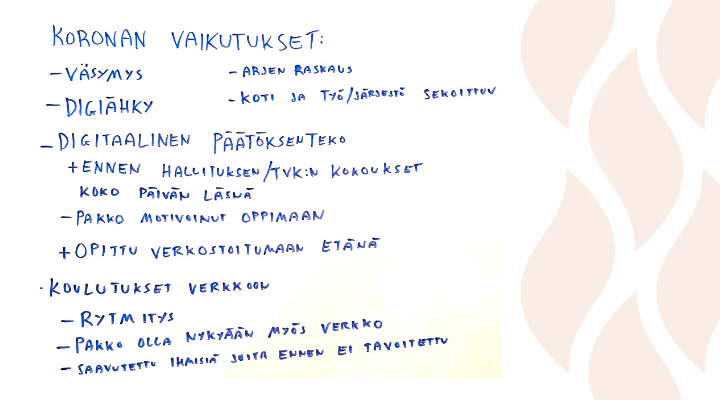 KORONAN VAIKUTUKSET:
- VÄSYMYS
- ARJEN RASKAUS
- DIGIÄHKY
- KOTI JA TYÖ/JÄRJESTÖ SEKOITTUU
- DIGITAALINEN PÄÄTÖKSENTEKO
+ ENNEN HALLITUKSEN/TVK:N KOKOUKSET
KOKO PÄIVÄN LÄSNÄ
- PAKKO MOTIVOINUT OPPIMAAN
+ OPITTU VERKOSTOITUMAAN ETÄNÄ
· KOULUTUKSET VERKKOON
- RYTMITYS
- PAKKO OLLA NYKYÄÄN MYÖS VERKKO
- SAAVUTETTU IHMISIÄ JOITA ENNEN EI TAVOITETTU